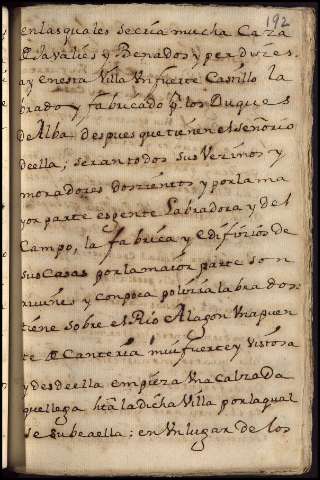 192
enlasquales secria mucha Caza
de Javalies y Venados y perdizes.
ay enesta Villa Vn fuerte Castillo la
brado y fabricado pr. los Duques
de Alba despues que tienen el señorio
deella; seran todos sus Vezinos y
moradores dosientos y por la ma
yor parte es gente Labradora y del
Campo, la fabrica y edificios de
sus Casas por la maior parte son
ruines y con poca policia labrados.
tiene sobre el Rio Alagon Vna puen
te de Canteria mui fuerte y Vistosa
y desdeella empieza Vna Calzada
que llega hta. la dicha Villa por laqual
se sube aella: en Vn lugar de los